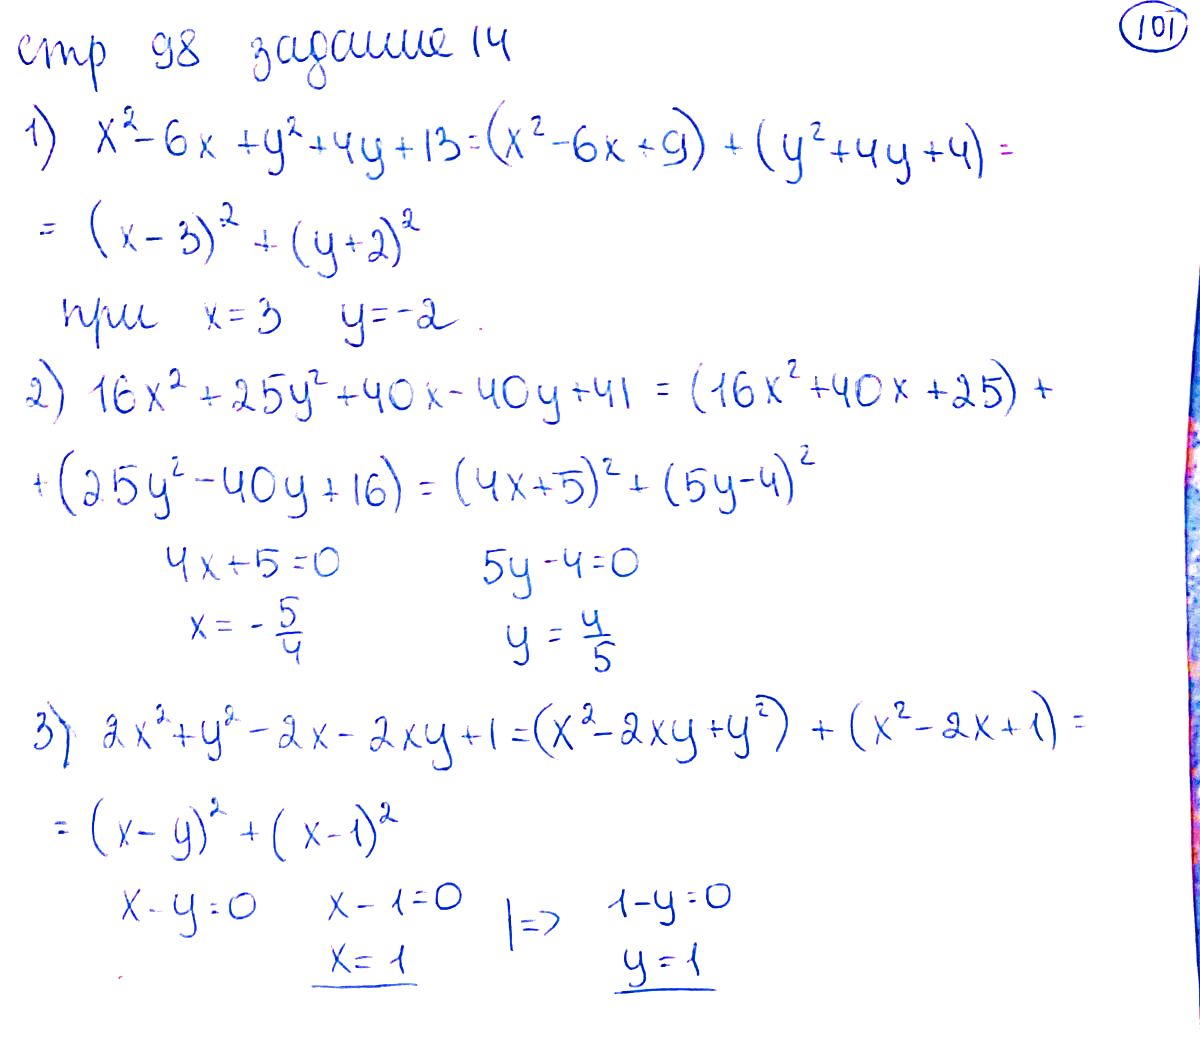 101
стр 98 задание 14
1) x² - 6x + y² + 4y + 13 = (x² - 6x + 9) + (y² + 4y + 4) =
= (x - 3)² + (y + 2)²
при x = 3 y = -2
2) 16x² + 25y² + 40x - 40y + 41 = (16x² + 40x + 25) +
+ (25y² - 40y + 16) = (4x + 5)² + (5y - 4)²
4x + 5 = 0 5y - 4 = 0
x = - 5/4 y = 4/5
3) 2x² + y² - 2x - 2xy + 1 = (x² - 2xy + y²) + (x² - 2x + 1) =
= (x - y)² + (x - 1)²
x - y = 0 x - 1 = 0 |=> 1 - y = 0
x = 1 y = 1